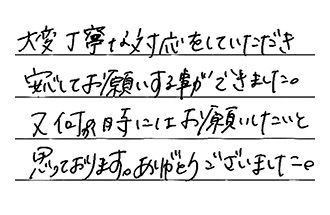 大変丁寧な対応をしていただき
安心してお願いする事ができました。
又何か時にはお願いしたいと
思っております。ありがとうございました。